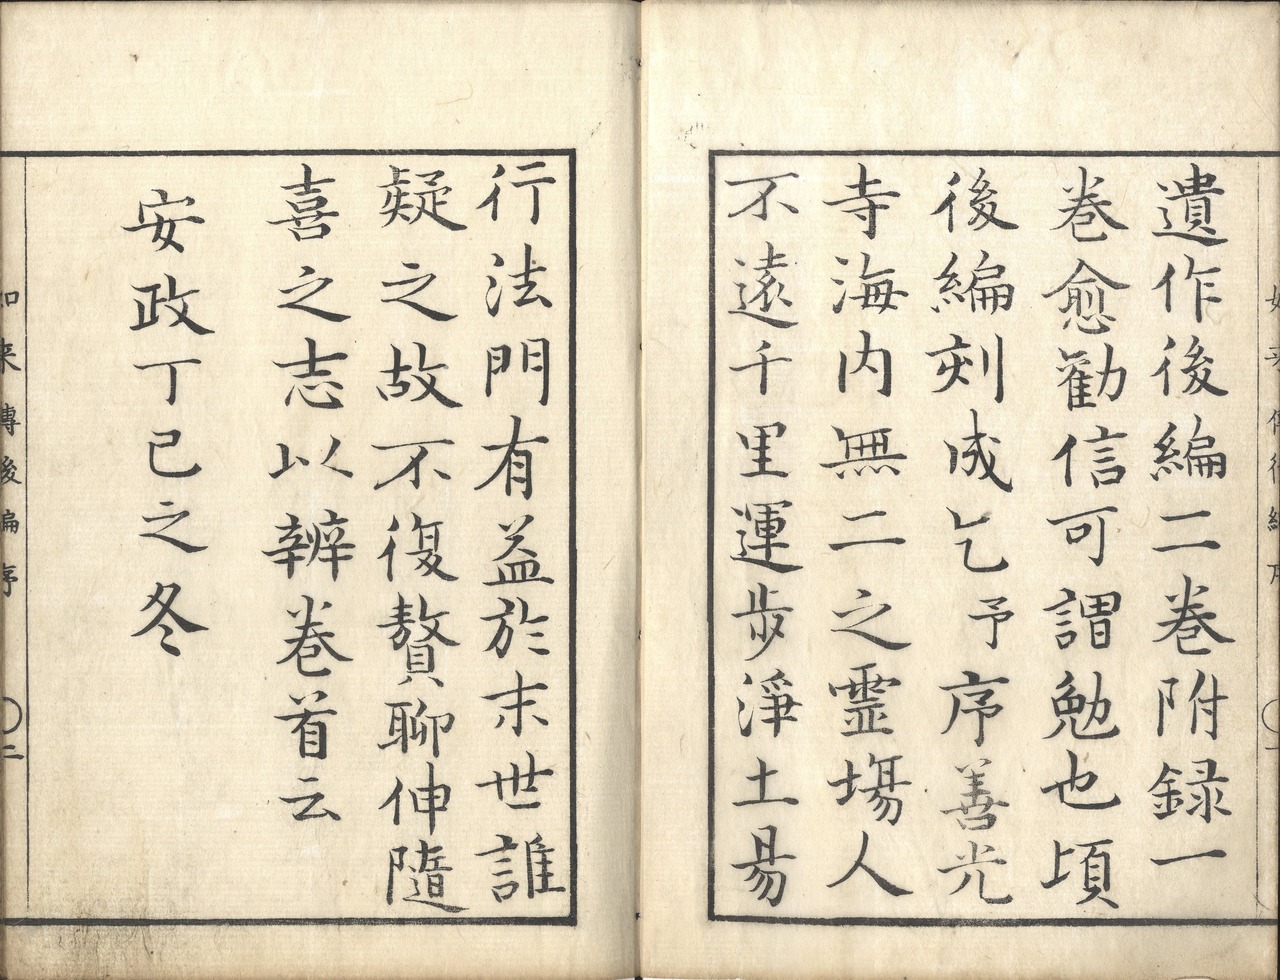 遺作後編二巻附録一
巻愈勸信可謂勉也頃
後編刻成乞予序善光
寺海内無二之霊塲人
不遠千里運歩淨土易
行法門有益於末世誰
疑之故不復贅聊伸隨
喜之志以辨巻首云
安政丁已之冬
如来傳後編序
二